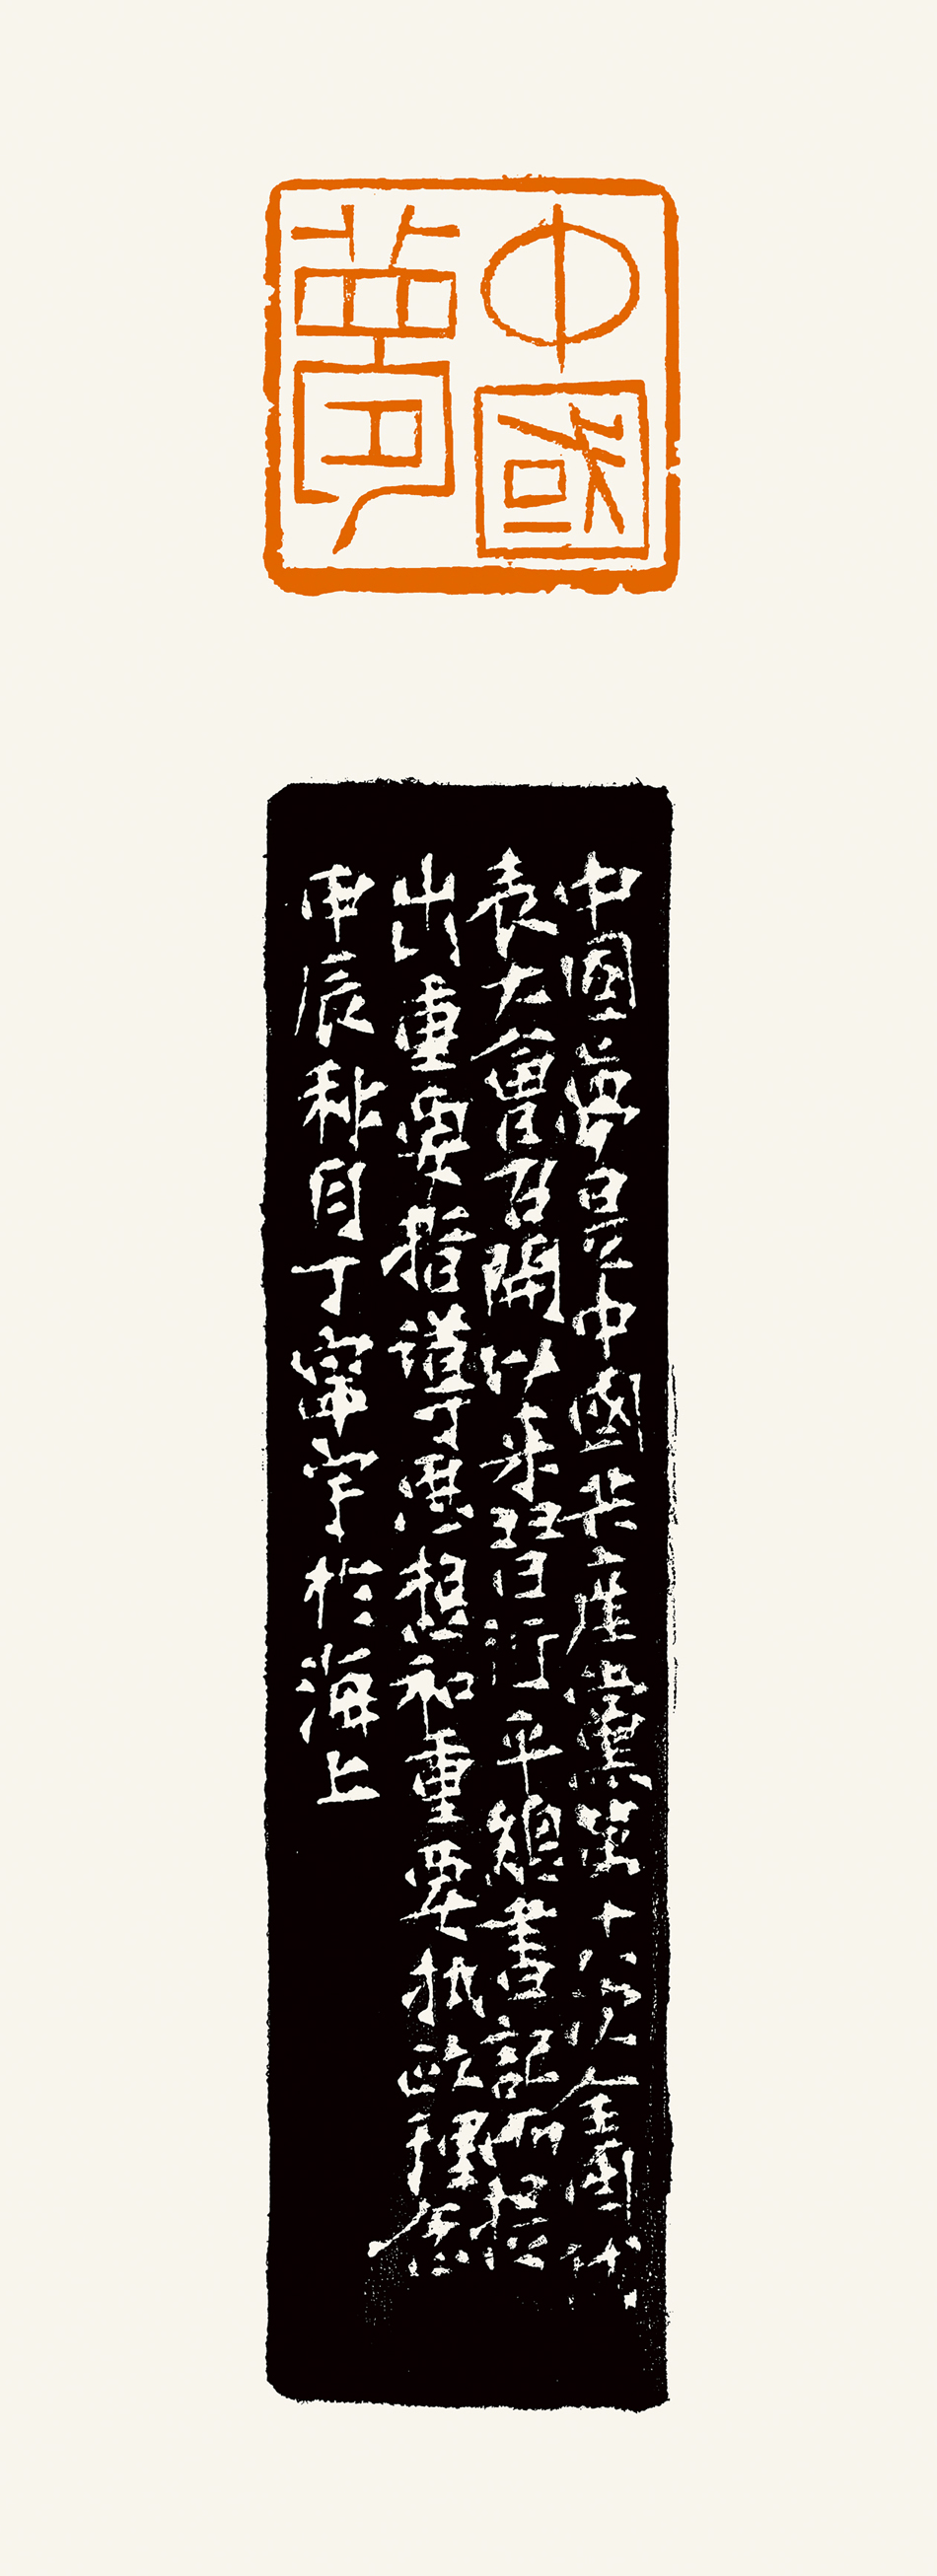 中國
夢
中國夢是中國共產黨第十八次全國代
表大會召開以來習近平總書記所提
出重要指導思想和重要執政理念
甲辰秋月丁寧宇於海上